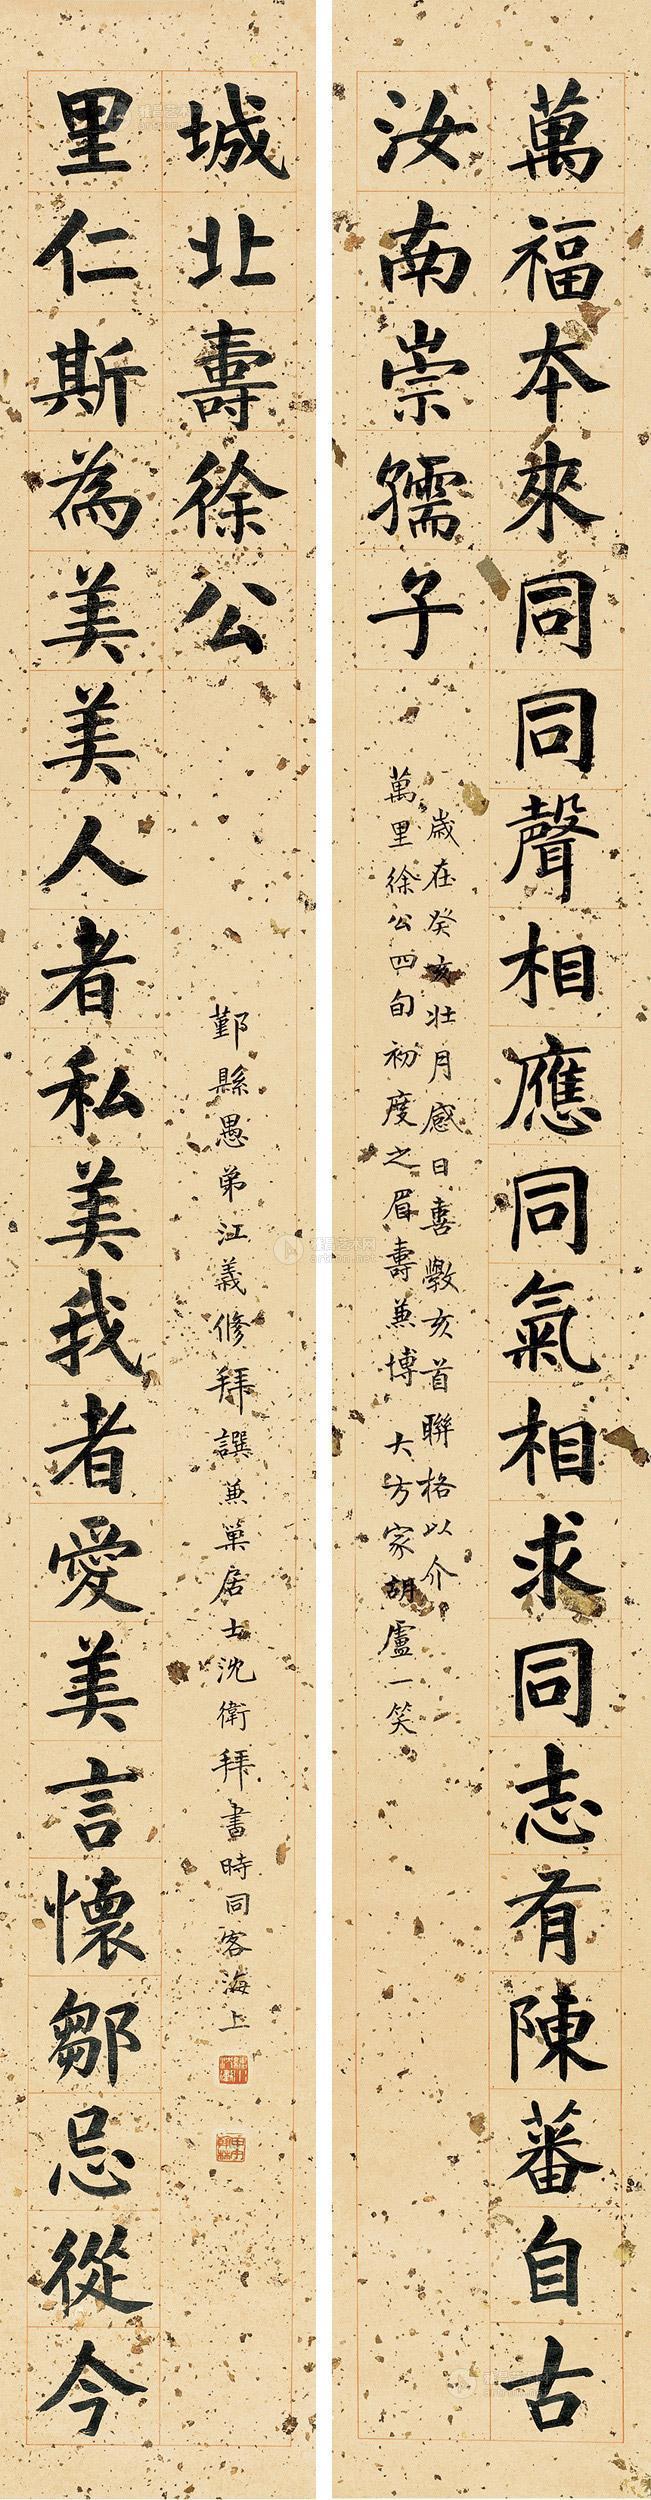 萬福本來同同聲相應同氣相求同志有陳蕃自古
汝南崇孺子
歲在癸亥壯月感日喜斆亥首聯格以介
萬里徐公四旬初度之眉壽兼博 大方家胡盧一笑
里仁斯為美美人者私美我者愛美言懷鄒忌從今
城北壽徐公
鄞縣愚弟江義修拜譔兼巢居士沈衛拜書時同客海上